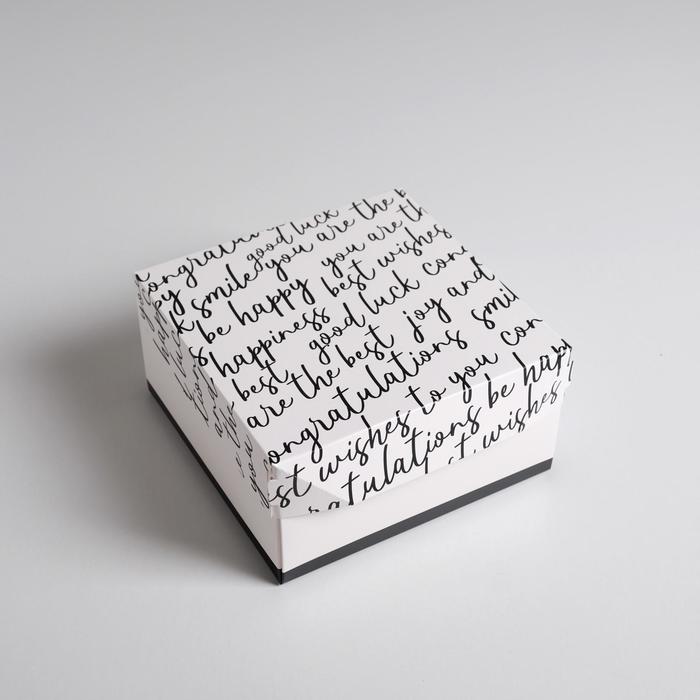 good luck
smile you are the b
be happy you are th
happiness best wishes
best good luck con
are the best joy and
congratulations smil
best wishes to you con
ratulations be happ
st wishes